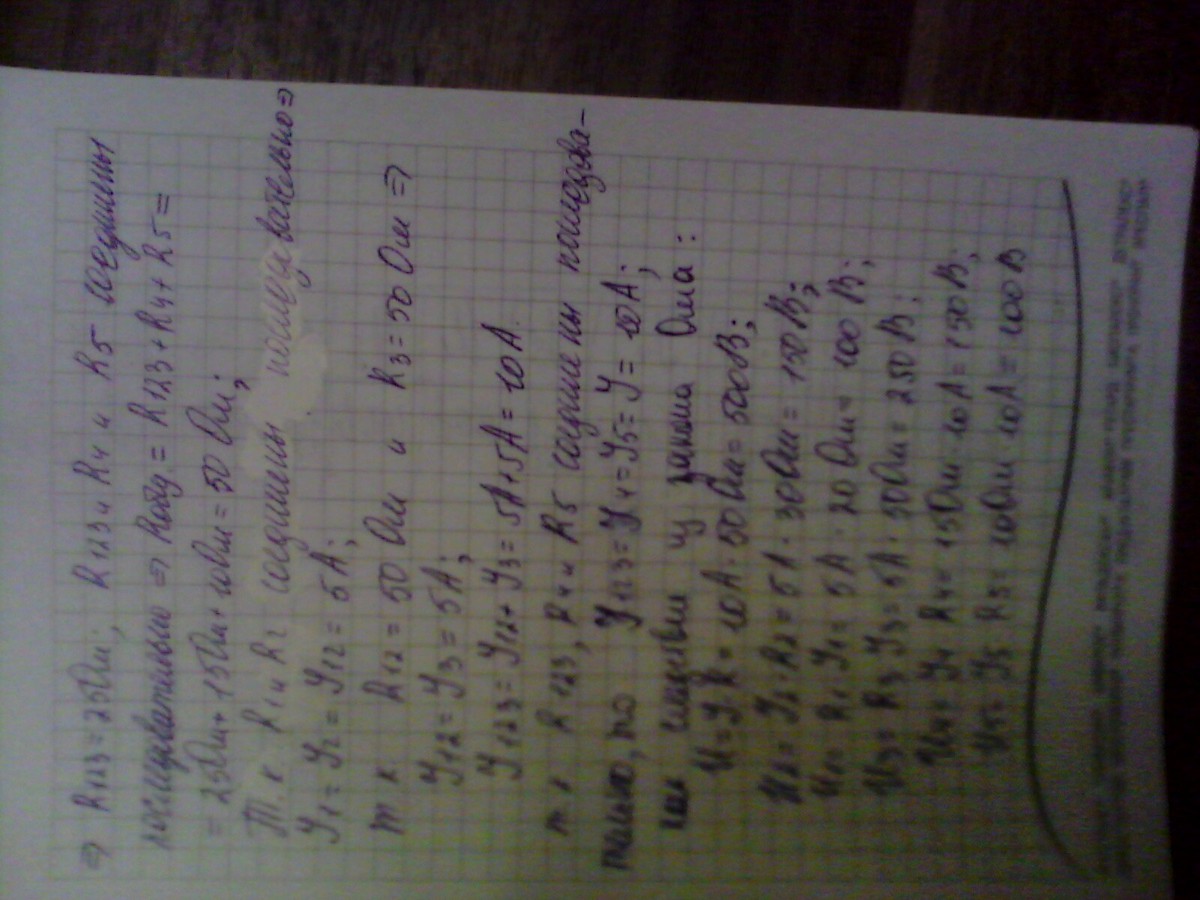 ⇒ R123 = 25Ом; R123 и R4 и R5 соединины
последовательно ⇒ Rобщ = R123 + R4 + R5 =
= 25Ом + 15Ом + 10Ом = 50 Ом;
Т. к R1 и R2 соединены последовательно ⇒
У1 = У2 = У12 = 5А;
т к R12 = 50 Ом и R3 = 50 Ом ⇒
У12 = У3 = 5А;
У123 = У12 + У3 = 5А + 5А = 10А.
т. к R123, R4 и R5 соединены последова-
тельно, то У123 = У4 = У5 = У = 10А;
как следствии из закона Ома:
U = У·R = 10А · 50 Ом = 500В;
U2 = У2 · R2 = 5А · 30Ом = 150В;
U1 = R1 У1 = 5А · 20 Ом = 100 В;
U3 = R3 У3 = 5А · 50Ом = 250В;
U4 = У4 R4 = 15Ом · 10А = 150В;
U5 = У5 R5 = 10Ом · 10А = 100В